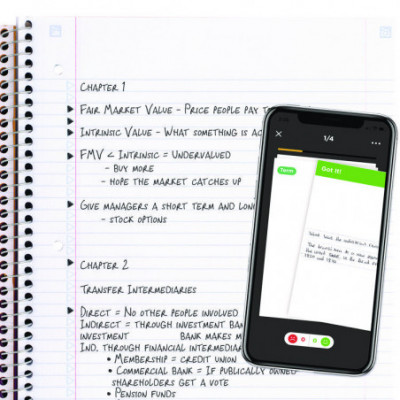 CHAPTER 1
FAIR MARKET VALUE - PRICE PEOPLE PAY
INTRINSIC VALUE - WHAT SOMETHING IS
FMV < INTRINSIC = UNDERVALUED
- BUY MORE
- HOPE THE MARKET CATCHES UP
GIVE MANAGERS A SHORT TERM AND
- STOCK OPTIONS
CHAPTER 2
TRANSFER INTERMEDIARIES
DIRECT = NO OTHER PEOPLE INVOLVED
INDIRECT = THROUGH INVESTMENT
INVESTMENT BANK MAKES
IND. THROUGH FINANCIAL
• MEMBERSHIP = CREDIT UNION
• COMMERCIAL BANK = IF PUBLICALLY OWNED
SHAREHOLDERS GET A VOTE
• PENSION FUNDS
1/4
Term
Got it!